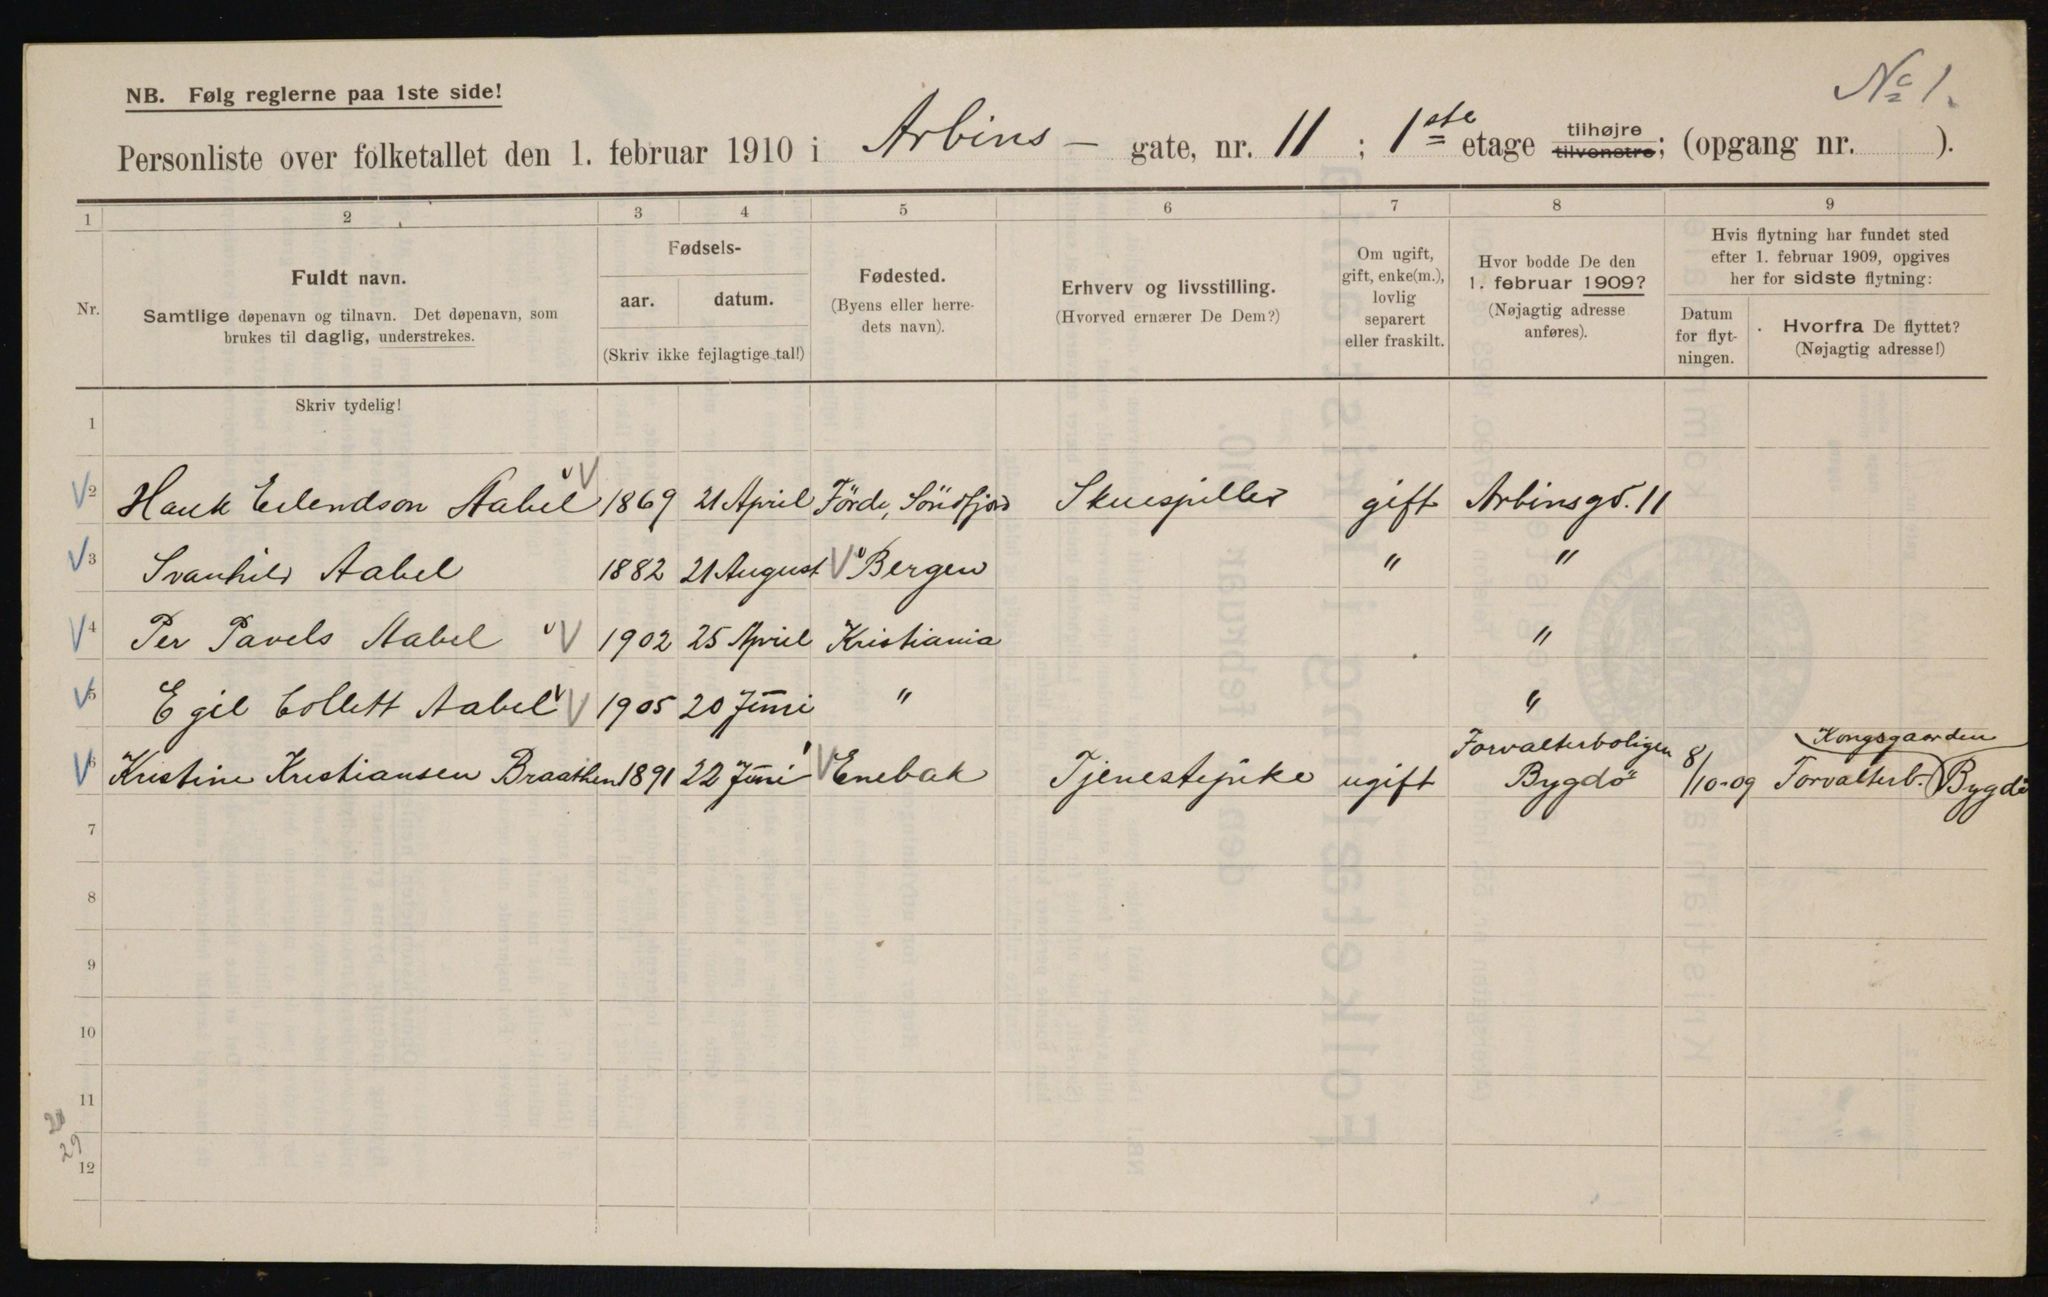 NB. Følg reglerne paa 1ste side!
No 1.
Personliste over folketallet den 1. februar 1910 i Arbins — gate, nr. 11 ; 1ste etage tilhøjre tilvenstre; (opgang nr. ).
1 2 3 4 5 6 7 8 9
Nr.
Fuldt navn.
Samtlige døpenavn og tilnavn. Det døpenavn, som
brukes til daglig, understrekes.
Fødsels-
aar. datum.
(Skriv ikke fejlagtige tal!)
Fødested.
(Byens eller herre-
dets navn).
Erhverv og livsstilling.
(Hvorved ernærer De Dem?)
Om ugift,
gift, enke(m.),
lovlig
separert
eller fraskilt.
Hvor bodde De den
1. februar 1909?
(Nøjagtig adresse
anføres).
Hvis flytning har fundet sted
efter 1. februar 1909, opgives
her for sidste flytning:
Datum
for flyt-
ningen.
Hvorfra De flyttet?
(Nøjagtig adresse!)
Skriv tydelig!
1
2 Hauk Erlendson Aabel 1869 21 April Förde, Söndfjord Skuespiller gift Arbinsgd. 11
3 Svanhild Aabel 1882 21 August Bergen " "
4 Per Pavels Aabel 1902 25 April Kristiania "
5 Egil Collett Aabel 1905 20 Juni " "
6 Kristine Kristiansen Braathen 1891 22 Juni Enebak Tjenestepike ugift Forvalterboligen Bygdö 8/10-09 Kongsgaarden Forvalterb. Bygdö
7
8
9
10
11
12
29